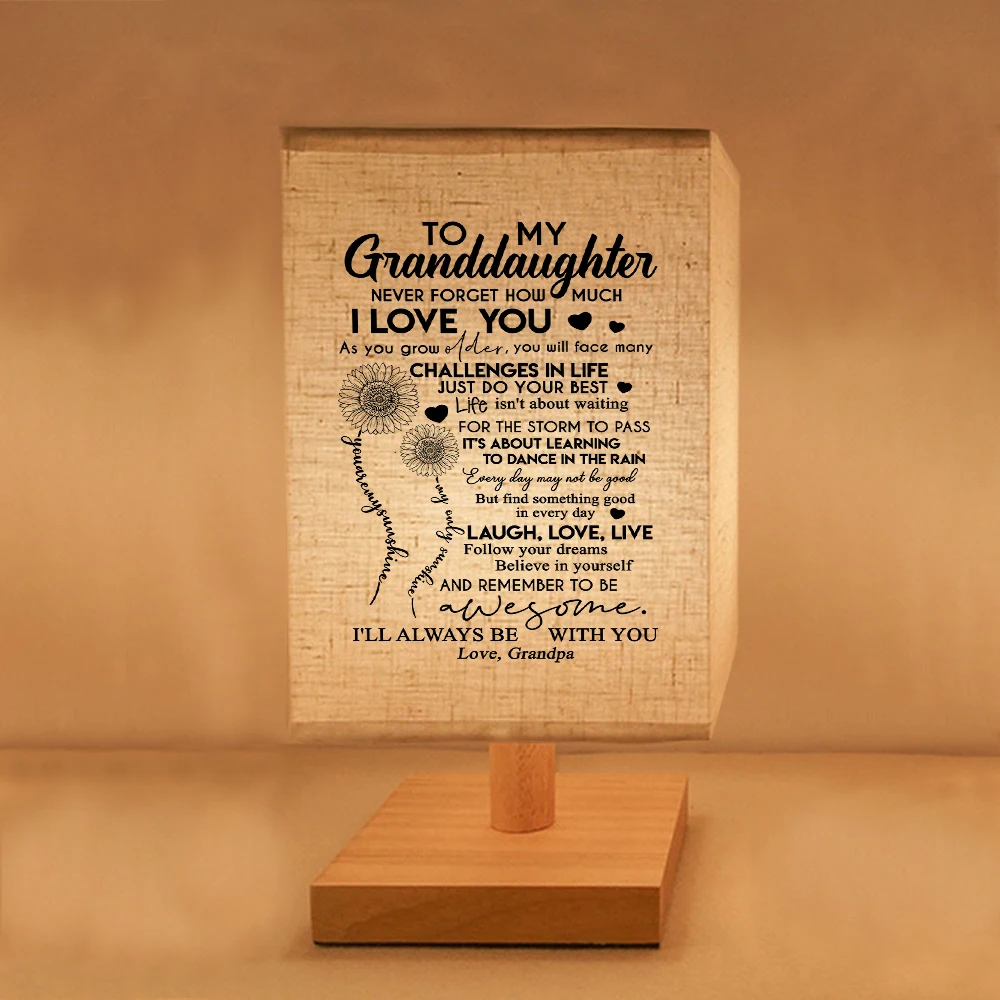 TO MY
Granddaughter
NEVER FORGET HOW MUCH
I LOVE YOU
As you grow older, you will face many
CHALLENGES IN LIFE
JUST DO YOUR BEST
Life isn't about waiting
FOR THE STORM TO PASS
IT'S ABOUT LEARNING
TO DANCE IN THE RAIN
Every day may not be good
But find something good
in every day
LAUGH, LOVE, LIVE
Follow your dreams
Believe in yourself
AND REMEMBER TO BE
awesome.
I'LL ALWAYS BE WITH YOU
Love, Grandpa
youaremysunshine
my only sunshine